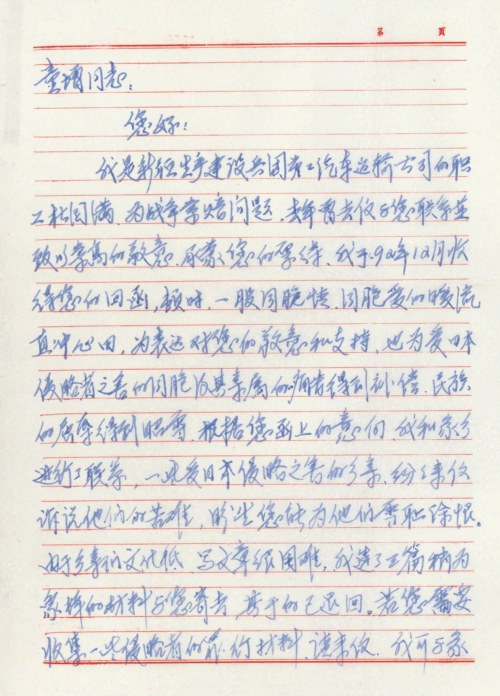 第 頁
童增同志:
您好:
我是新疆生产建设兵团第工汽车运输公司的职
工杜国满,为战争索赔问题,去年曾去信与您联系并
致以崇高的敬意,承蒙您的厚待,我于92年12月收
得您的回函,顿时,一股同胞情,同胞爱的暖流
直冲心田,为表达对您的敬意和支持,也为受日本
侵略者之害的同胞及其亲属的痛苦得到补偿,民族
的屈辱得到昭雪,根据您函上的意向,我和家乡
进行了联系,一些受日本侵略之害的乡亲,纷纷来信
诉说他们的苦难,盼望您能为他们雪耻除恨。
由于乡亲们文化低,写文章很困难,我选了三篇稍为
象样的材料与您寄去,其于的已退回。若您需要
收集一些侵略者的罪行材料,请来信,我可与家